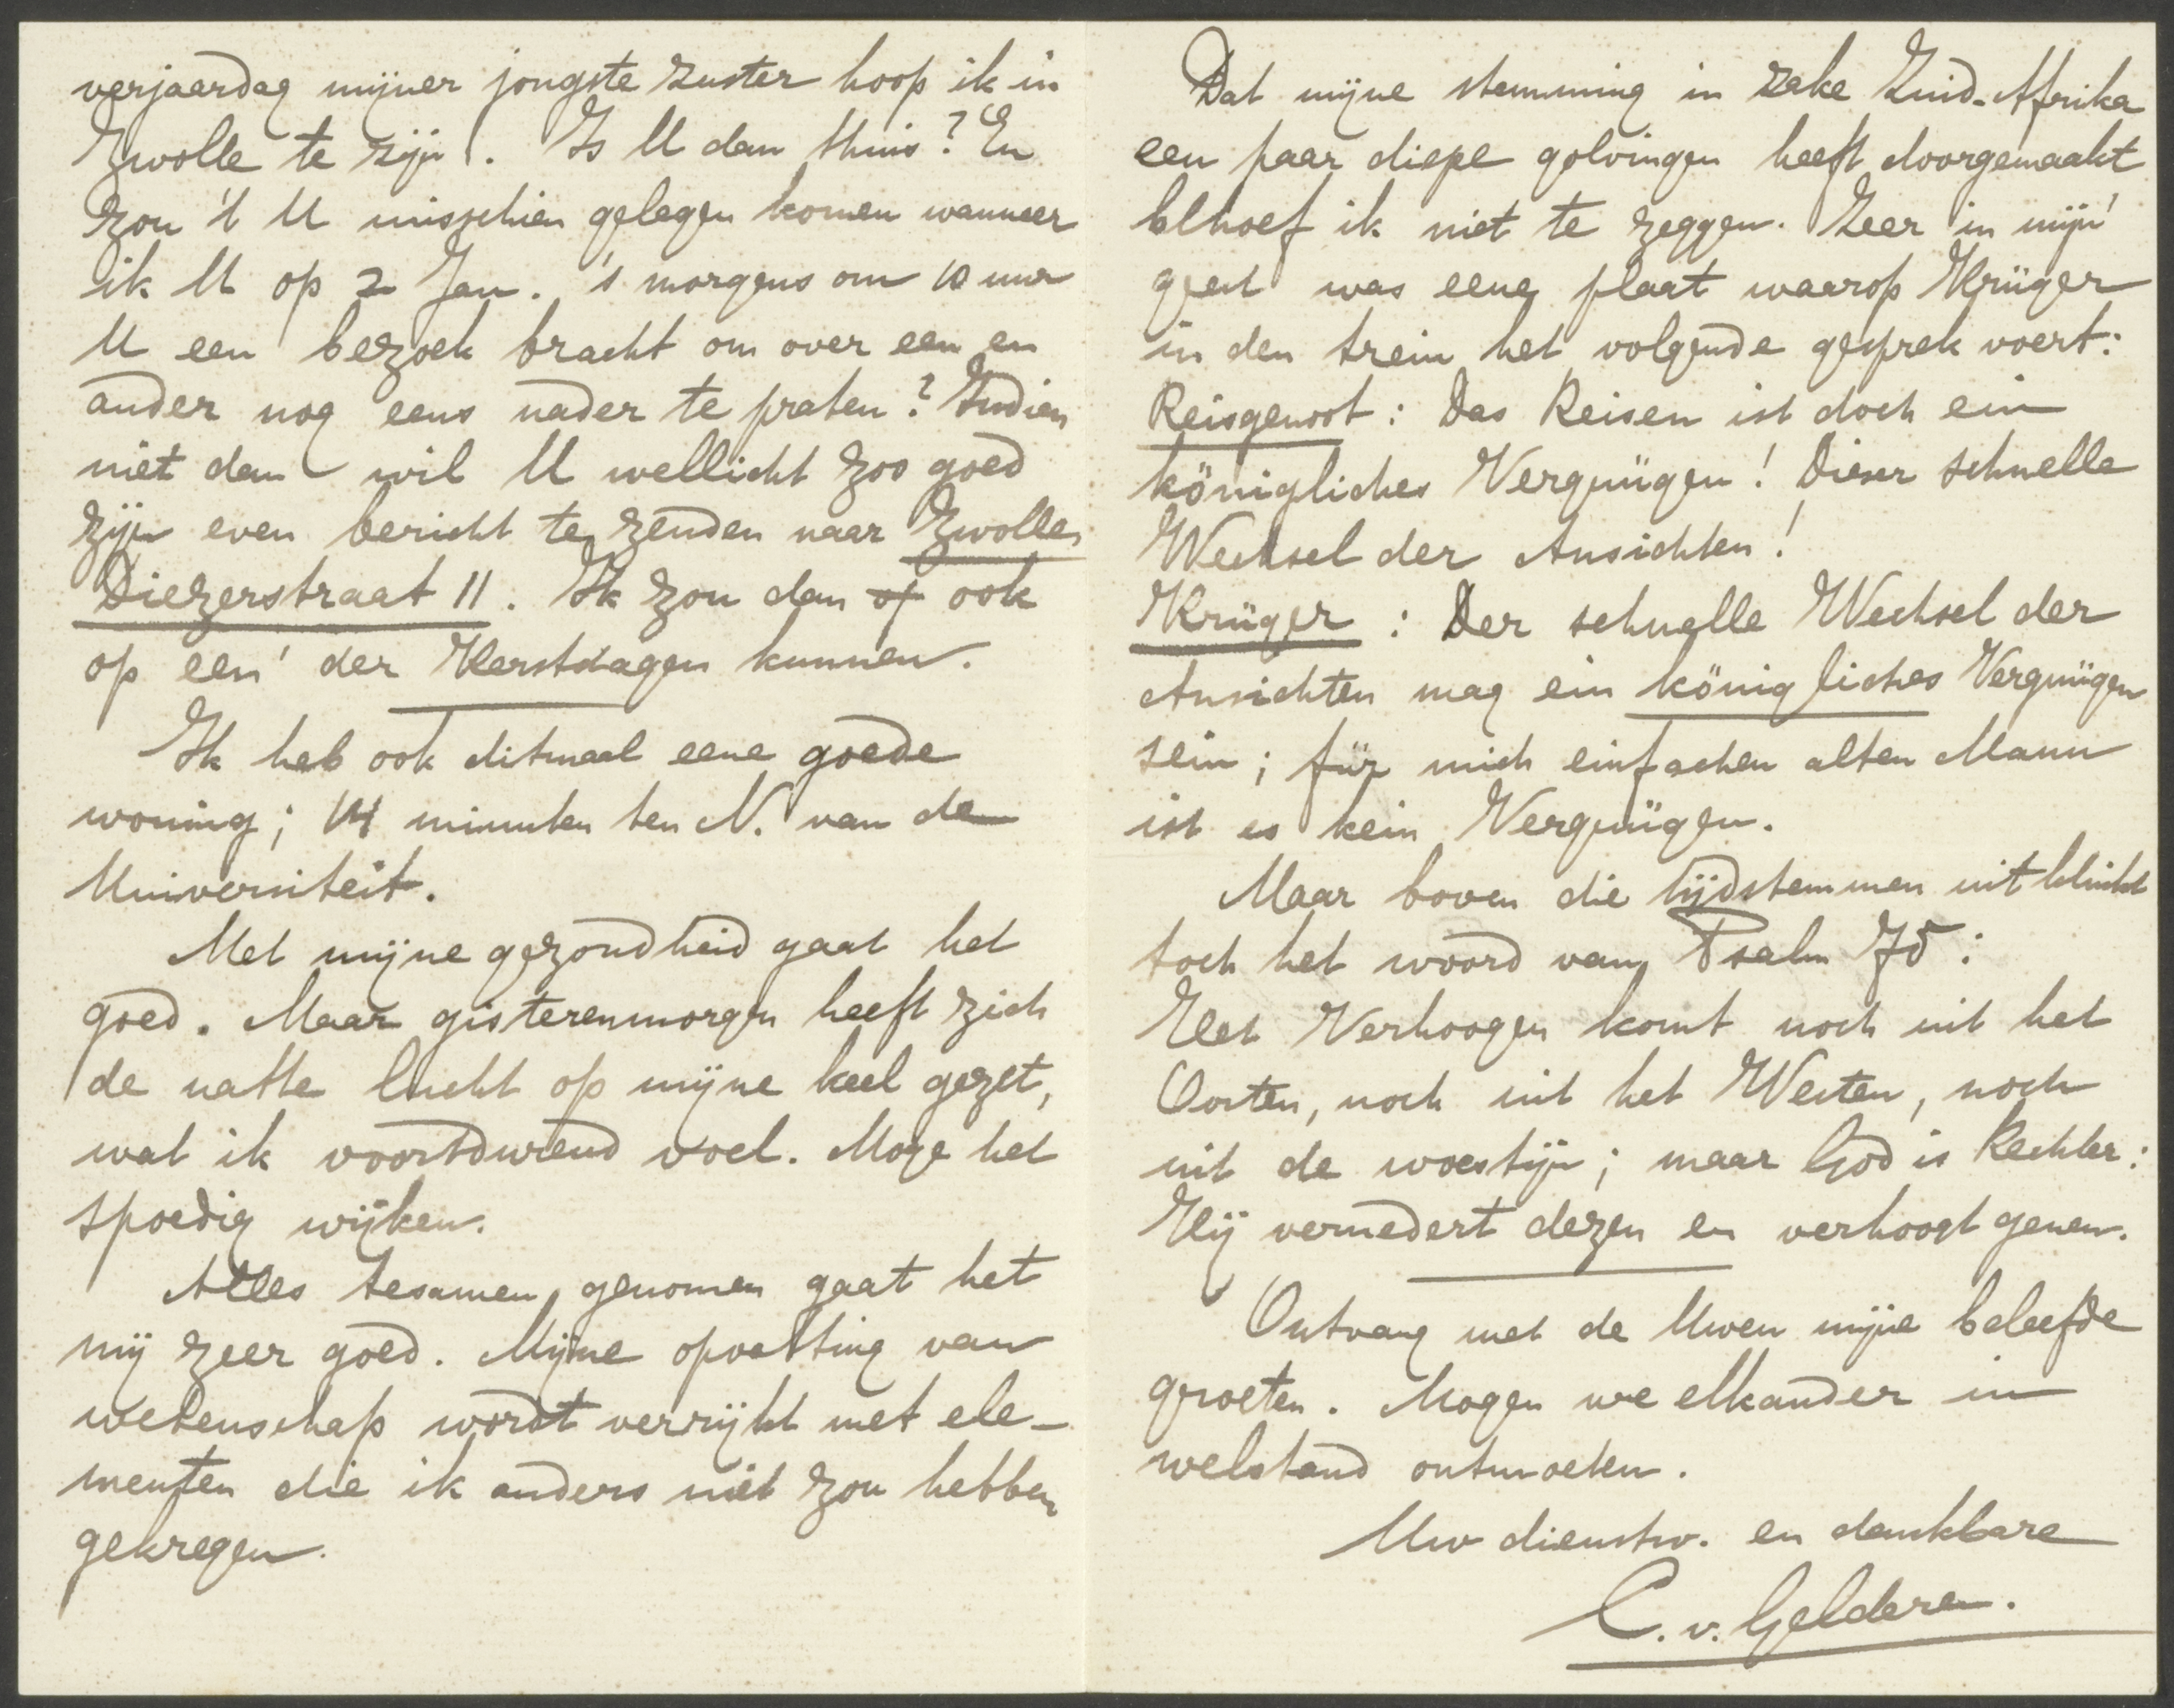 verjaardag mijner jongste zuster hoop ik in
Zwolle te zijn. Is U dan thuis? En
zou 't U misschien gelegen komen wanneer
ik U op 2 Jan. 's morgens om 10 uur
U een bezoek bracht om over een en
ander nog eens nader te praten? Indien
niet dan wil U wellicht zoo goed
zijn even bericht te zenden naar Zwolle,
Diezerstraat 11. Ik zou dan of ook
op een' der Kerstdagen kunnen.
Ik heb ook ditmaal eene goede
woning; 14 minuten ten N. van de
Universiteit.
Met mijne gezondheid gaat het
goed. Maar gisterenmorgen heeft zich
de natte lucht op mijne keel gezet,
wat ik voortdurend voel. Moge het
spoedig wijken.
Alles tesamen genomen gaat het
mij zeer goed. Mijne opvatting van
wetenschap wordt verrijkt met ele-
menten die ik anders niet zou hebben
gekregen.
Dat mijne stemming in zake Zuid-Afrika
een paar diepe golvingen heeft doorgemaakt
behoef ik niet te zeggen. Zeer in mijn'
geest was eene plaat waarop Krüger
in den trein het volgende gesprek voert:
Reisgenoot: Das Reisen ist doch ein
königliches Vergnügen! Dieser schnelle
Wechsel der Ansichten!
Krüger: Der schnelle Wechsel der
Ansichten mag ein königliches Vergnügen
sein; für mich einfachen alten Mann
ist es kein Vergnügen.
Maar boven die tijdstemmen uit klinkt
toch het woord van Psalm 75:
Het Verhoogen komt noch uit het
Oosten, noch uit het Westen, noch
uit de woestijn; maar God is Rechter:
Hij vernedert dezen en verhoogt genen.
Ontvang met de Uwen mijne beleefde
groeten. Mogen we elkander in
welstand ontmoeten.
Uw dienstw. en dankbare
C. v. Gelderen.